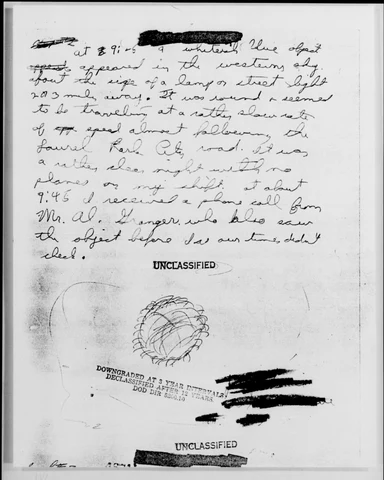 at 9:05 a whiteish blue object
appeared in the western sky
about the size of a lamp or street light
2 or 3 miles away. It was round & seemed
to be traveling at a rather slow rate
of speed almost following the
Laurel Park City road. It was
a rather clear night with no
planes on my shift. at about
9:45 I received a phone call from
Mr. Al. Granger who also saw
the object before I as our times didn't
check.
UNCLASSIFIED
DOWNGRADED AT 3 YEAR INTERVALS;
DECLASSIFIED AFTER 12 YEARS
DOD DIR 5200.10
UNCLASSIFIED